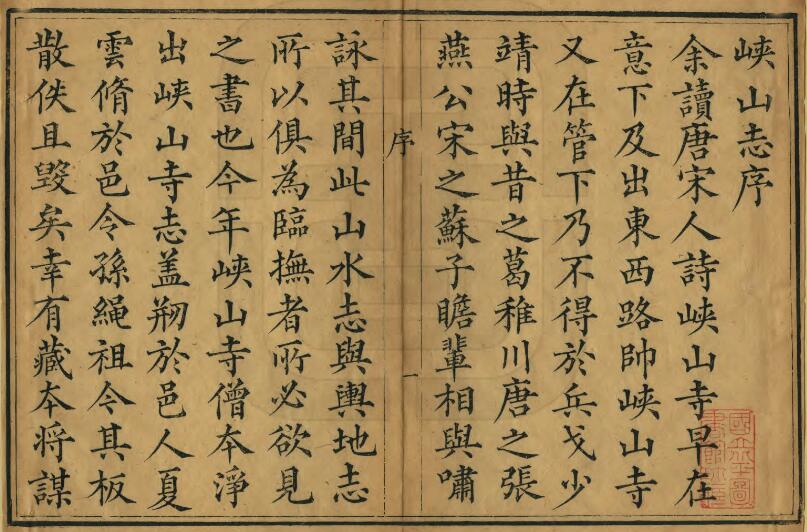 峽山志序
余讀唐宋人詩峽山寺早在
意下及出東西路帥峽山寺
又在管下乃不得於兵戈少
靖時與昔之葛稚川唐之張
燕公宋之蘇子瞻輩相與嘯
序
一
詠其間此山水志與輿地志
所以俱為臨撫者所必欲見
之書也今年峽山寺僧本淨
出峽山寺志盖刱於邑人夏
雲脩於邑令孫繩祖今其板
散佚且毀矣幸有藏本將謀